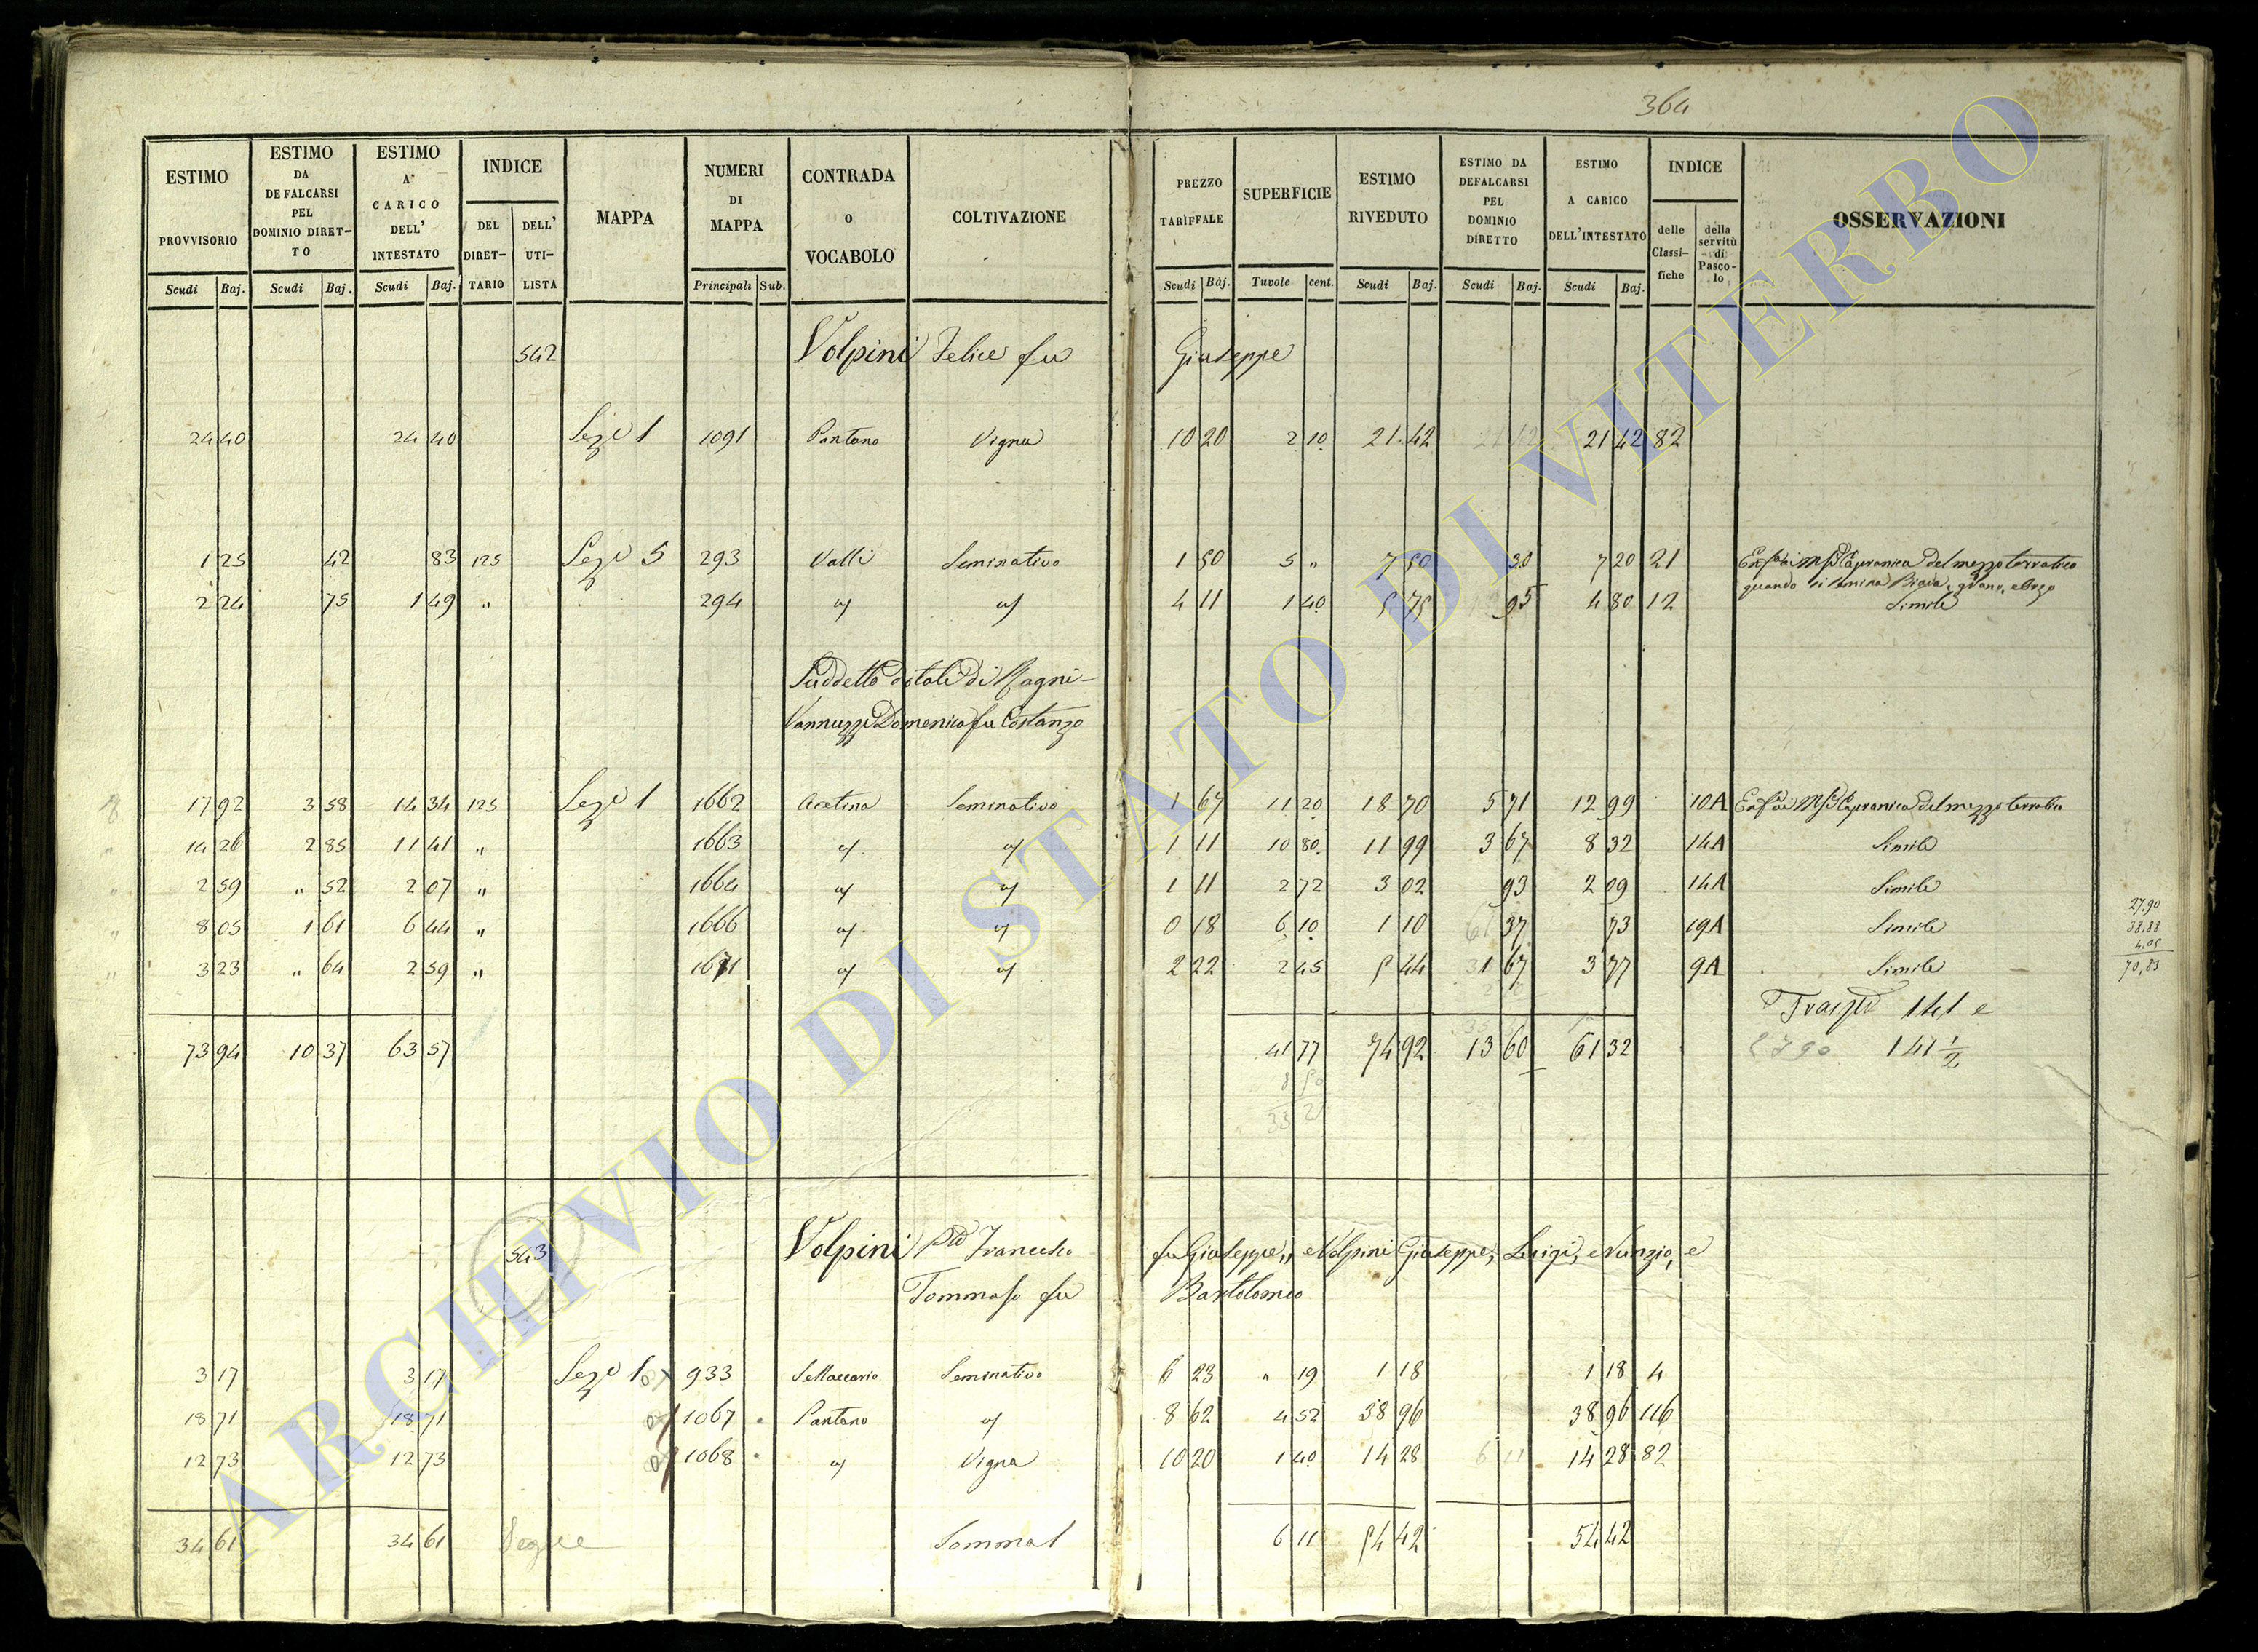 364
ESTIMO PROVVISORIO | ESTIMO DA DEFALCARSI PEL DOMINIO DIRET-TO | ESTIMO A CARICO DELL' INTESTATO | INDICE DEL DIRET-TARIO | DELL' UTI-LISTA | MAPPA | NUMERI DI MAPPA | CONTRADA O VOCABOLO | COLTIVAZIONE | PREZZO TARIFFALE | SUPERFICIE | ESTIMO RIVEDUTO | ESTIMO DA DEFALCARSI PEL DOMINIO DIRETTO | ESTIMO A CARICO DELL'INTESTATO | INDICE delle Classi-fiche | della servitù di Pasco-lo | OSSERVAZIONI
Scudi Baj. | Scudi Baj. | Scudi Baj. | Principali Sub. | Scudi Baj. | Tavole cent. | Scudi Baj. | Scudi Baj. | Scudi Baj.
542 Volpini Felice fu Giuseppe
24 40 24 40 Seze 1 1091 Pantano Vigna 10 20 2 10 21 42 21 42 21 42 82
1 25 42 83 125 Seze 5 293 Valli Seminativo 1 50 5 " 7 50 30 7 20 21 Capranica del mezzo terratico
quando si semina Biada, grano,
2 24 75 1 49 " 294 4 11 1 40 5 75 95 4 80 12 Simile
Suddetto dotale di Ragni-
Vannuzzi Domenica fu Costanzo
17 92 3 58 14 34 125 Seze 1 1662 Acetina Seminativo 1 67 11 20 18 70 5 71 12 99 10A Capranica del mezzo terratico
14 26 2 85 11 41 " 1663 1 11 10 80 11 99 3 67 8 32 14A Simile
2 59 " 52 2 07 " 1664 1 11 2 72 3 02 93 2 09 14A Simile
8 05 1 61 6 44 " 1666 0 18 6 10 1 10 37 73 19A Simile
3 23 " 64 2 59 " 1671 2 22 2 45 5 44 1 67 3 77 9A Simile
27.90
38.88
4.05
70,83
141 e
73 94 10 37 63 57 41 77 74 92 13 60 61 32 2790 141 1/2
8 50
33 2
543 Volpini Francesco fu Giuseppe,, e Volpini Giuseppe, Luigi, e Nunzio, e
Tommaso fu Bartolomeo
3 17 3 17 Seze 1 933 Seminativo 6 23 " 19 1 18 1 18 4
18 71 18 71 1067 Pantano 8 62 4 52 38 96 38 96 116
12 73 12 73 1068 Vigna 10 20 1 40 14 28 14 28 82
34 61 34 61 Segue Somma 6 11 54 42 54 42
ARCHIVIO DI STATO DI VITERBO